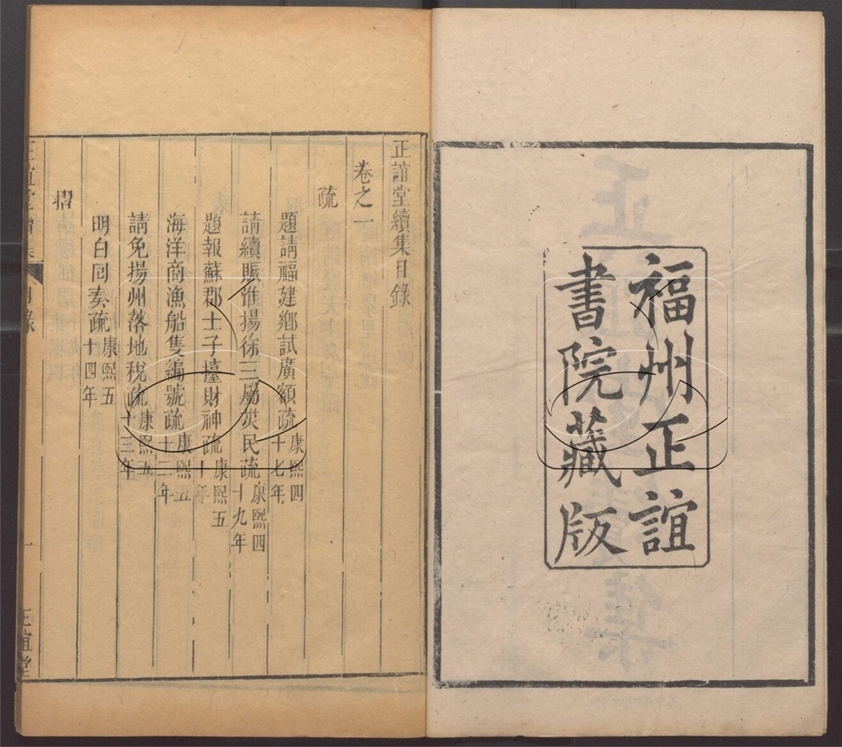 福州正誼
書院藏版
正誼堂續集目錄
卷之一
疏
題請福建鄉試廣額疏康熙四十七年
請續賑淮揚徐三屬災民疏康熙四十九年
題報蘇郡士子擡財神疏康熙五十年
海洋商漁船隻編號疏康熙五十二年
請免揚州落地稅疏康熙五十三年
明白回奏疏康熙五十四年
摺
正誼堂續集
目錄
一
正誼堂